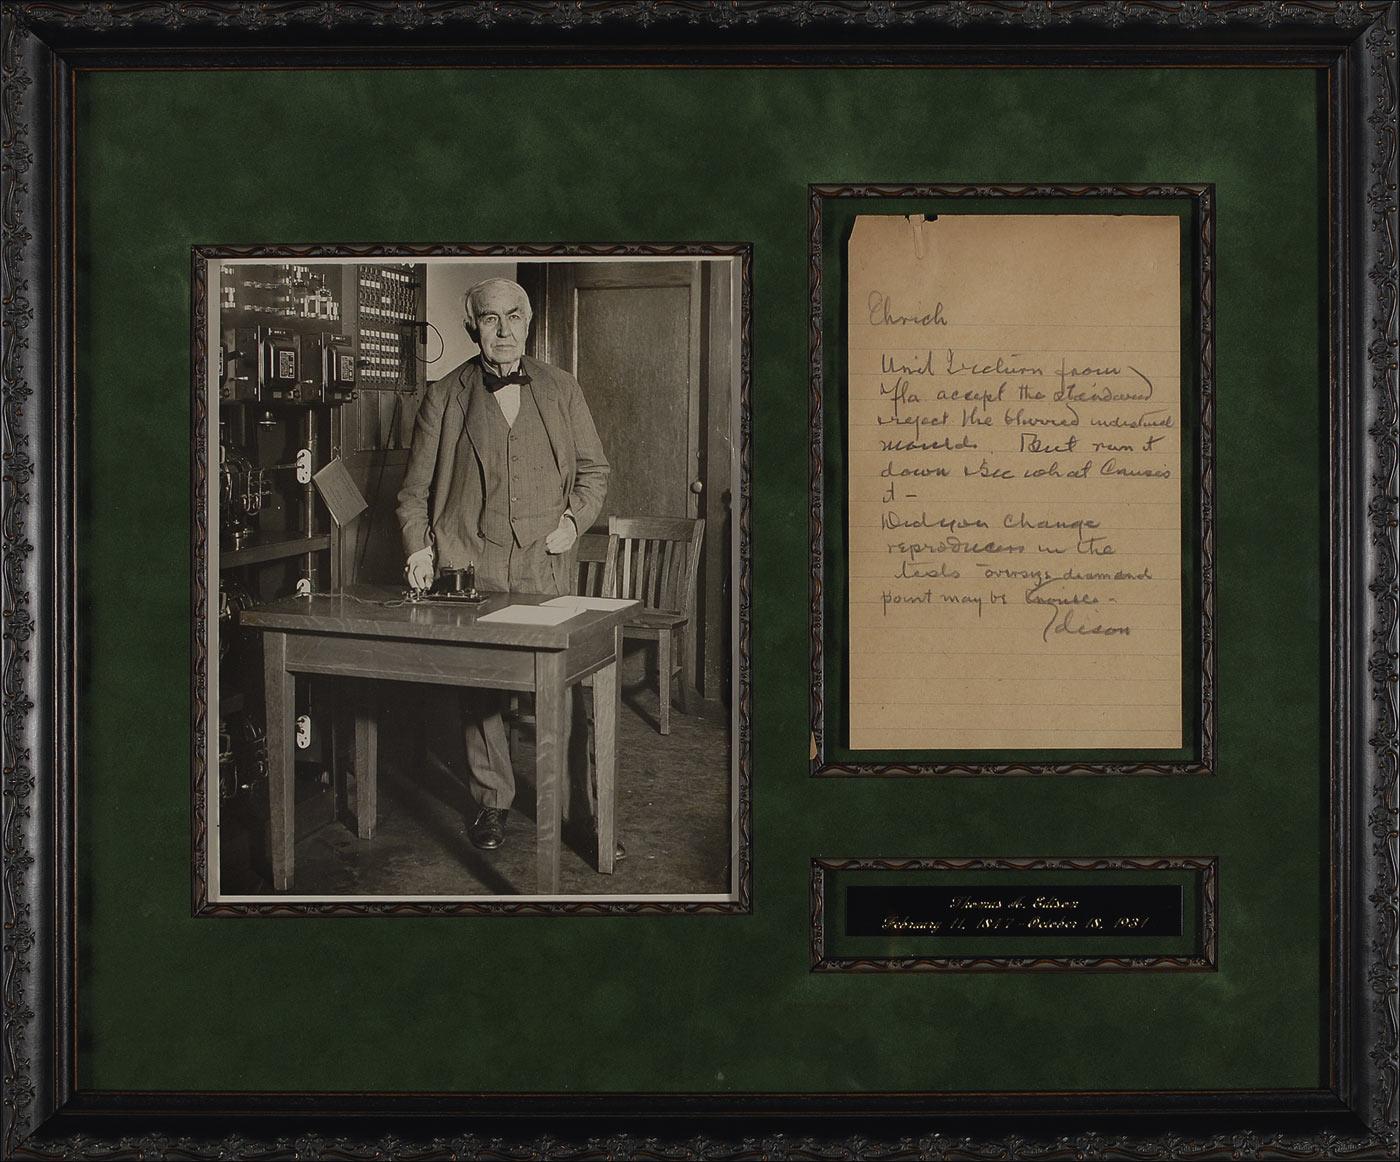 Ehrich
Until I return from
Fla. accept the standard
& reject the blurred indistinct
mould. But run it
down & see what causes
it –
Did you change
reproducers in the
tests – oversize diamond
point may be trouble –
Edison
Thomas A. Edison
February 11, 1847 - October 18, 1931